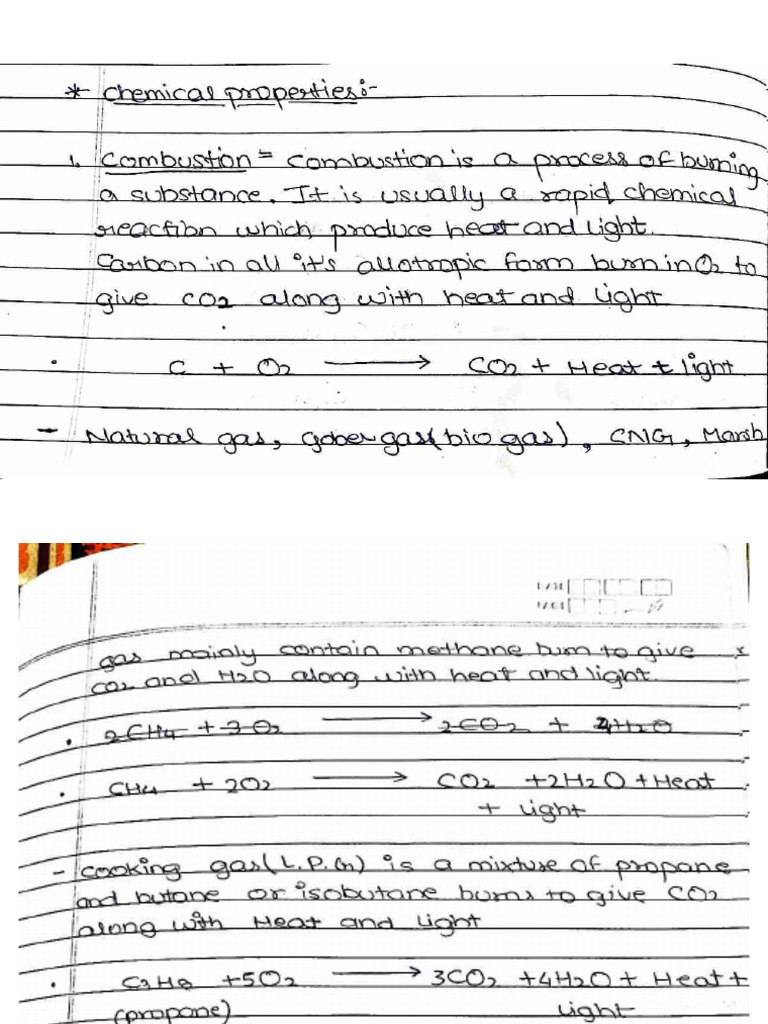 * Chemical properties:-
1. Combustion = Combustion is a process of burning
a substance. It is usually a rapid chemical
reaction which produce heat and light.
Carbon in all it's allotropic form burn in O2 to
give CO2 along with heat and light
. C + O2 ⟶ CO2 + Heat + light
- Natural gas, Gober gas (bio gas), CNG, Marsh
DATE
PAGE
gas mainly contain methane burn to give
CO2 and H2O along with heat and light.
. 2CH4 + 3O2 ⟶ 2CO2 + 4H2O
. CH4 + 2O2 ⟶ CO2 + 2H2O + Heat
+ Light
- Cooking gas (L.P.G) is a mixture of propane
and butane or isobutane burns to give CO2
along with Heat and Light
. C3H8 + 5O2 ⟶ 3CO2 + 4H2O + Heat +
(propane) Light